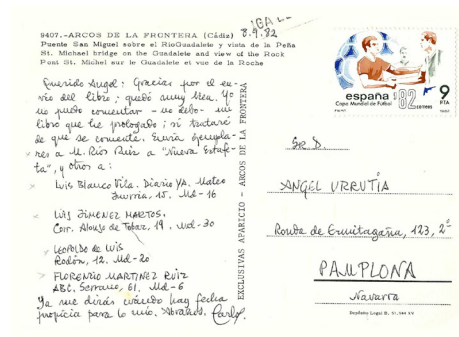 9407.-ARCOS DE LA FRONTERA (Cádiz)
Puente San Miguel sobre el RioGuadalete y vista de la Peña
St. Michael bridge on the Guadalete and view of the Rock
Pont St. Michel sur le Guadalete et vue de la Roche
8.9.82
Querido Angel: Gracias por el en-
vío del libro; quedó muy bien. Yo
no pudo comentar - no debo- un
libro que he prologado; sí trataré
de que se comente. Envía ejempla-
res a M. Ríos Ruiz a "Nueva Estafe-
ta", y otros a:
Luis Blanco Vila. Diario YA. Mateo
Inurria, 15. Md-16
LUIS JIMENEZ MARTOS.
Corr. Alonso de Tobar, 19. Md-30
LEOPOLDO DE LUIS
Rodón, 12. Md-20
FLORENCIO MARTINEZ RUIZ
ABC. Serrano, 61. Md-6
Ya me dirás cuándo hay fecha
propicia para lo mío. Abrazos. Carlos
EXCLUSIVAS APARICIO - ARCOS DE LA FRONTERA
españa
Copa Mundial de Futbol
82
CORREOS
9
PTA
SR. D.
ANGEL URRUTIA
Ronda de Ermitagaña, 123, 2º
PAMPLONA
Navarra